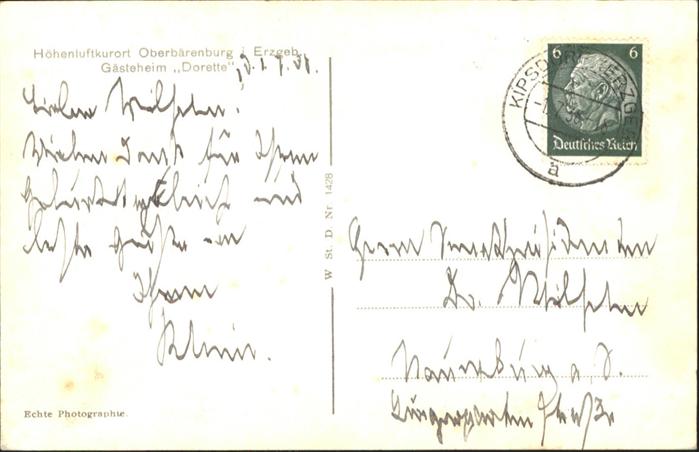 Höhenluftkurort Oberbärenburg i. Erzgeb.
Gästeheim „Dorette"
Lieber Wilhelm.
Vielen Dank für Ihren
Geburtstagsbrief und
beste Grüße von
Ihrem
W St. D. Nr. 1428
Echte Photographie.
6 6
Deutsches Reich
KIPSDORF (ERZGEB)
a
Herrn Senatspräsidenten
Dr. Wilhelm
Naumburg a. S.